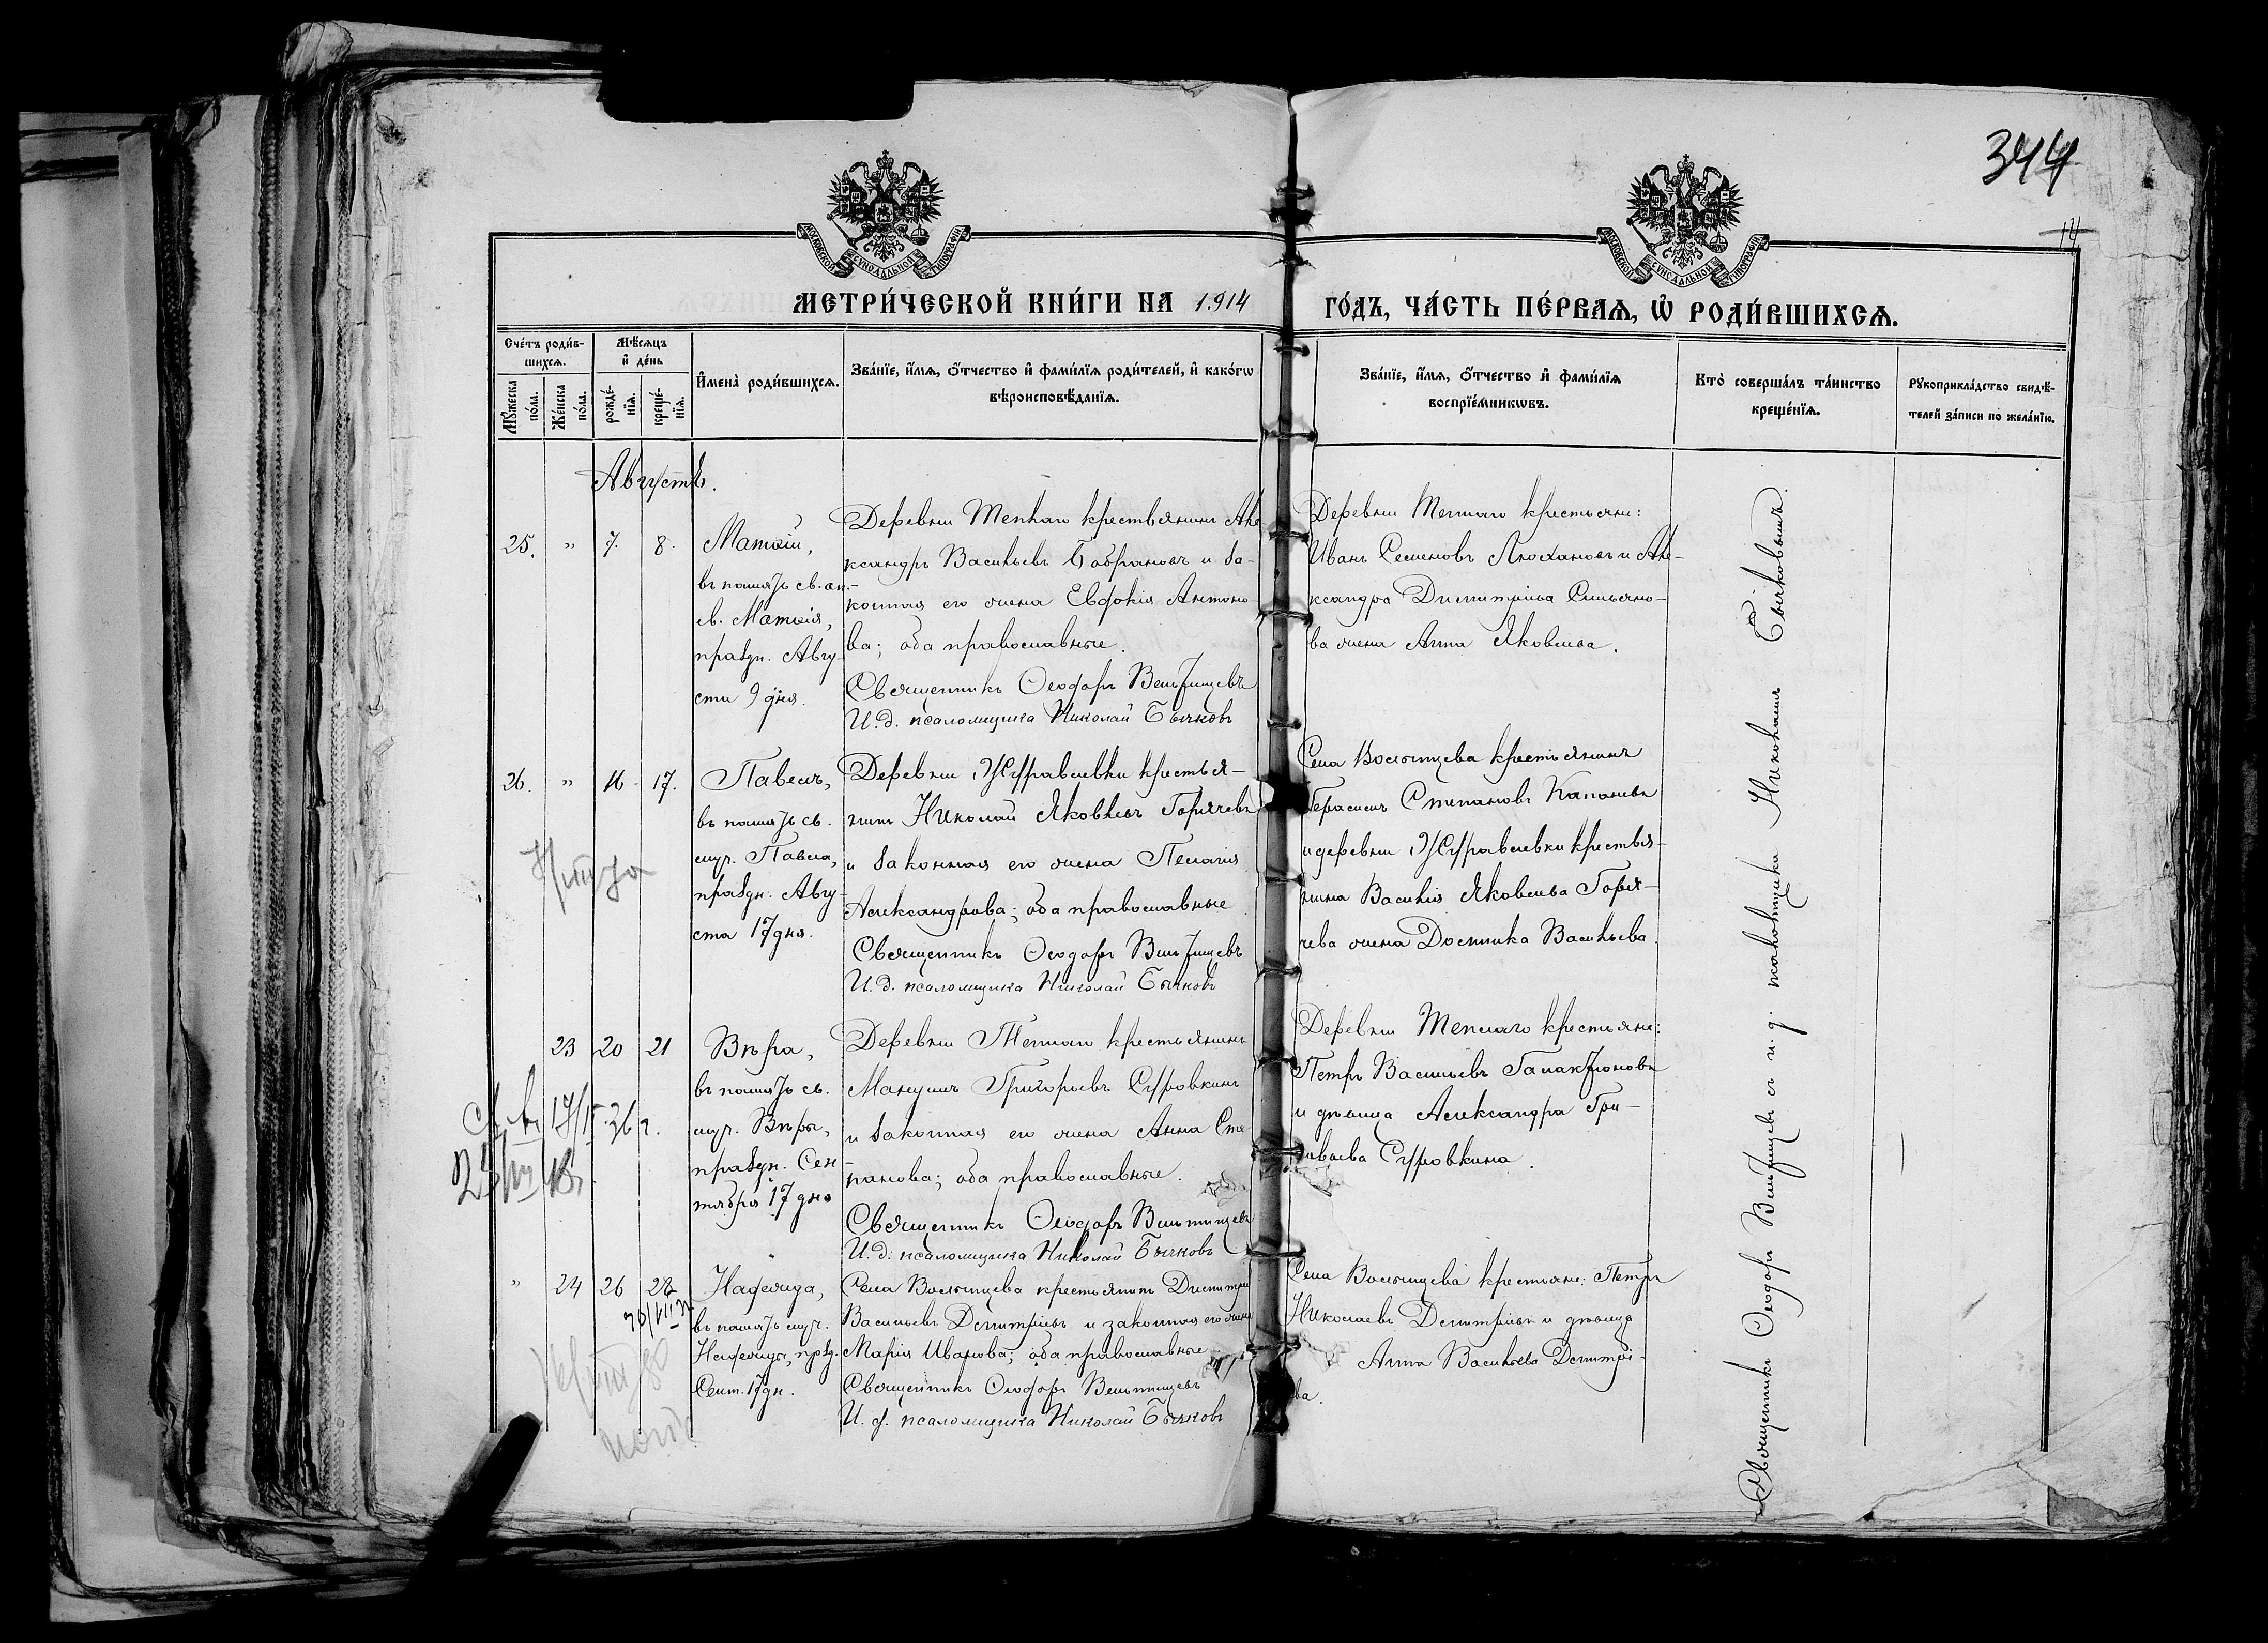 344
14
МОСКОВСКОЙ СУНОДАЛЬНОЙ ТИПОГРАФІИ
МОСКОВСКОЙ СУНОДАЛЬНОЙ ТИПОГРАФІИ
МЕТРИ́ЧЕСКОЙ КНИ́ГИ НА 1914
ГО́ДЪ, ЧА́СТЬ ПЕ́РВАѦ, Ѡ҆ РОДИ́ВШИХСѦ.
Сче́тъ роди́в-
шихсѧ.
Мѹ́жеска
по́ла.
Же́нска
по́ла.
Мѣ́сѧцъ
и҆ де́нь
рожде́-
нїѧ.
креще́-
нїѧ.
И҆мена̀ роди́вшихсѧ.
Зва́нїе, и҆́мѧ, ѻ҆́тчество и҆ фами́лїѧ роди́телей, и҆ како́гѡ
вѣроисповѣ́данїѧ.
Зва́нїе, и҆́мѧ, ѻ҆́тчество и҆ фами́лїѧ
воспрїе́мникѡвъ.
Кто̀ соверша́лъ та́инство
креще́нїѧ.
Рѹкоприкла́дство свидѣ́-
телей за́писи по жела́нїю.
Августъ.
25. " 7. 8.
Матѳій,
въ память св. ап.
св. Матѳія,
праздн. Авгу-
ста 9 дня.
Деревни Теплаго крестьянинъ Але-
ксандръ Васильевъ Бобрановъ и за-
конная его жена Евфокія Антоно-
ва; оба православные.
Священникъ Ѳеодоръ Вельтищевъ
И. д. псаломщика Николай Бычковъ
Деревни Теплаго крестьяне:
Иванъ Семеновъ Люхановъ и Але-
ксандра Димитріева Симьяно-
ва жена Анна Яковлева.
26. " 16 17.
Павелъ,
въ память св.
муч. Павла,
праздн. Авгу-
ста 17 дня.
Деревни Журавлевки крестья-
нинъ Николай Яковлевъ Горячевъ
и законная его жена Пелагія
Александрова; оба православные
Священникъ Ѳеодоръ Вельтищевъ
И. д. псаломщика Николай Бычковъ
Села Волынцева крестьянинъ
Герасимъ Степановъ Капаневъ
и деревни Журавлевки крестья-
нина Василія Яковлева Горя-
чева жена Домника Васильева.
23 20 21
Вѣра,
въ память св.
муч. Вѣры,
праздн. Сен-
тября 17 дня
Деревни Теплаго крестьянинъ
Максимъ Григорьевъ Суровкинъ
и законная его жена Анна Сте-
панова; оба православные.
Священникъ Ѳеодоръ Вельтищевъ
И. д. псаломщика Николай Бычковъ
Деревни Теплаго крестьяне:
Петръ Васильевъ Галактіоновъ
и дѣвица Александра Гри-
Суровкина.
" 24 26 28
Надежда,
въ память муч.
Надежды, празд.
Сент. 17 дн.
Села Волынцева крестьянинъ Димитрій
Васильевъ Димитріевъ и законная его жена
Марія Иванова; оба православные
Священникъ Ѳеодоръ Вельтищевъ
И. д. псаломщика Николай Бычковъ
Села Волынцева крестьяне: Петръ
Николаевъ Димитріевъ и дѣвица
Анна Васильева Димитріе-
ва.
Священникъ Ѳеодоръ Вельтищевъ съ и. д. псаломщика Николаемъ Бычковымъ.